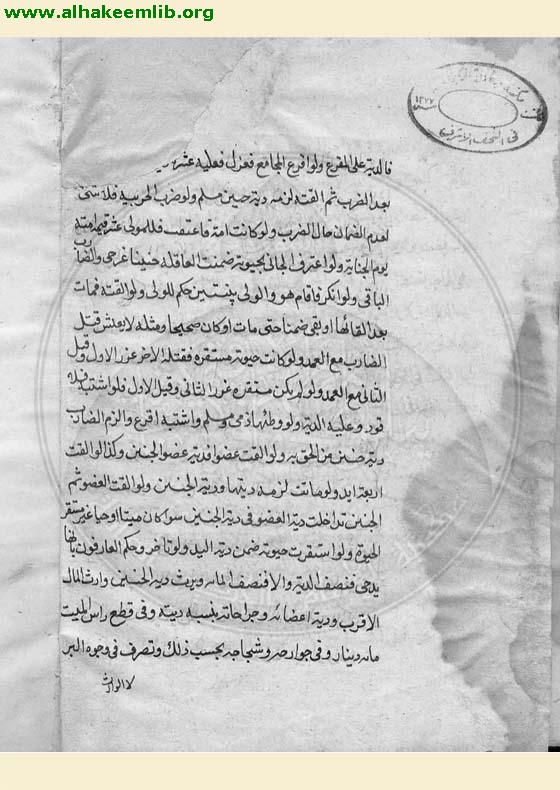 www.alhakeemlib.org
مكتبة
١٣٧٧
في النجف الاشرف
فالدية على المفزع ولو افزع المجامع فعزل فعليه عشرة
بعد الضرب ثم القته لزمه دية جنين مسلم ولو ضرب الحربية فلا شئ
لعدم الضمان حال الضرب ولو كانت امة فاعتقت فللمولى عشر قيمة امته
يوم الجناية ولو اعترف الجانى بحيوته ضمنت العاقلة جنينا غير حى والضارب
الباقى ولو انكر فاقام هو والولى بينتين حكم للولى ولو القته فمات
بعد القائها او بقى ضمنا حتى مات او كان صحيحا ومثله لا يعش قتل
الضارب مع العمد ولو كانت حيوته مستقرة فقتله الاخر عزر الاول وقتل
الثانى مع العمد ولو لم يكن مستقرة عزر الثانى وقيل الاول فلو اشتبه فلا
قود وعليه الدية ولو وطئها ذمى ومسلم واشتبه اقرع والزم الضارب
دية جنين من الحق به ولو القت عضوا فدية عضو الجنين وكذا لو القت
اربعة ايد ولو ماتت لزمه ديتها ودية الجنين ولو القت العضو ثم
الجنين تداخلت دية العضو فى دية الجنين سوا كان ميتا او حيا غير مستقر
الحيوة ولو استقرت حيوته ضمن دية اليد ولو تاخر وحكم العارفون بانها
يد حى فنصف الدية والا فنصف المائة ويرث دية الجنين وارث المال
الاقرب ودية اعضائه وجراحاته بنسبة ديته وفى قطع راس الميت
مائة دينار وفى جوارحه وشجاجه بحسب ذلك وتصرف فى وجوه البر
لا الوارث